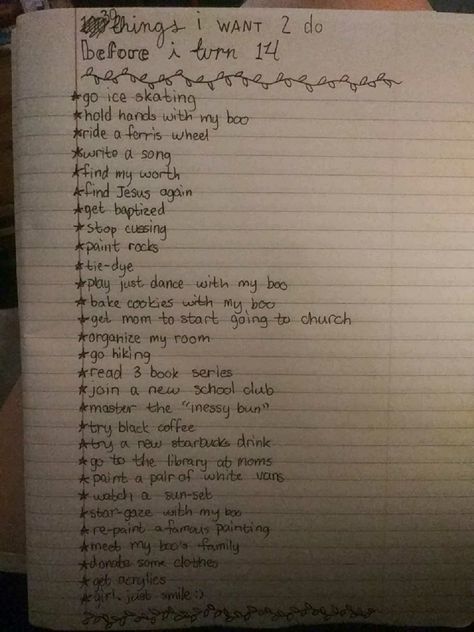 30 things i WANT 2 do
before i turn 14
★go ice skating
★hold hands with my boo
★ride a ferris wheel
★write a song
★find my worth
★find Jesus again
★get baptized
★stop cussing
★paint rocks
★tie-dye
★play just dance with my boo
★bake cookies with my boo
★get mom to start going to church
★organize my room
★go hiking
★read 3 book series
★join a new school club
★master the "messy bun"
★try black coffee
★try a new starbucks drink
★go to the library at moms
★paint a pair of white vans
★watch a sun-set
★star-gaze with my boo
★re-paint a famous painting
★meet my boo's family
★donate some clothes
★get acrylics
★girl, just smile :)